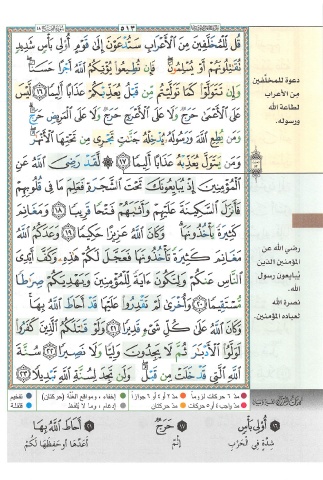 ٥١٣
قُل لِّلْمُخَلَّفِينَ مِنَ ٱلْأَعْرَابِ سَتُدْعَوْنَ إِلَىٰ قَوْمٍ أُو۟لِى بَأْسٍ شَدِيدٍ
تُقَـٰتِلُونَهُمْ أَوْ يُسْلِمُونَ ۖ فَإِن تُطِيعُوا۟ يُؤْتِكُمُ ٱللَّهُ أَجْرًا حَسَنًا ۖ
وَإِن تَتَوَلَّوْا۟ كَمَا تَوَلَّيْتُم مِّن قَبْلُ يُعَذِّبْكُمْ عَذَابًا أَلِيمًا ۝١٦ لَّيْسَ
عَلَى ٱلْأَعْمَىٰ حَرَجٌ وَلَا عَلَى ٱلْأَعْرَجِ حَرَجٌ وَلَا عَلَى ٱلْمَرِيضِ حَرَجٌ ۗ
وَمَن يُطِعِ ٱللَّهَ وَرَسُولَهُۥ يُدْخِلْهُ جَنَّـٰتٍ تَجْرِى مِن تَحْتِهَا ٱلْأَنْهَـٰرُ ۖ
وَمَن يَتَوَلَّ يُعَذِّبْهُ عَذَابًا أَلِيمًا ۝١٧ ۞ لَّقَدْ رَضِىَ ٱللَّهُ عَنِ
ٱلْمُؤْمِنِينَ إِذْ يُبَايِعُونَكَ تَحْتَ ٱلشَّجَرَةِ فَعَلِمَ مَا فِى قُلُوبِهِمْ
فَأَنزَلَ ٱلسَّكِينَةَ عَلَيْهِمْ وَأَثَـٰبَهُمْ فَتْحًا قَرِيبًا ۝١٨ وَمَغَانِمَ
كَثِيرَةً يَأْخُذُونَهَا ۗ وَكَانَ ٱللَّهُ عَزِيزًا حَكِيمًا ۝١٩ وَعَدَكُمُ ٱللَّهُ
مَغَانِمَ كَثِيرَةً تَأْخُذُونَهَا فَعَجَّلَ لَكُمْ هَـٰذِهِۦ وَكَفَّ أَيْدِىَ
ٱلنَّاسِ عَنكُمْ وَلِتَكُونَ ءَايَةً لِّلْمُؤْمِنِينَ وَيَهْدِيَكُمْ صِرَٰطًا
مُّسْتَقِيمًا ۝٢٠ وَأُخْرَىٰ لَمْ تَقْدِرُوا۟ عَلَيْهَا قَدْ أَحَاطَ ٱللَّهُ بِهَا ۚ
وَكَانَ ٱللَّهُ عَلَىٰ كُلِّ شَىْءٍ قَدِيرًا ۝٢١ وَلَوْ قَـٰتَلَكُمُ ٱلَّذِينَ كَفَرُوا۟
لَوَلَّوُا۟ ٱلْأَدْبَـٰرَ ثُمَّ لَا يَجِدُونَ وَلِيًّا وَلَا نَصِيرًا ۝٢٢ سُنَّةَ
ٱللَّهِ ٱلَّتِى قَدْ خَلَتْ مِن قَبْلُ ۖ وَلَن تَجِدَ لِسُنَّةِ ٱللَّهِ تَبْدِيلًا ۝٢٣
دعوة للمخلّفين
من الأعراب
لطاعة الله
ورسوله.
رضي الله عن
المؤمنين الذين
يُبايعون رسول
الله.
نصرة الله
لعباده المؤمنين.
مدّ ٦ حركات لزوماً مدّ ٢ أو ٤ أو ٦ جوازاً إخفاء، ومواقع الغنّة (حركتان) تفخيم
مدّ واجب ٤ أو ٥ حركات مدّ حركتان إدغام، وما لا يُلفظ قلقلة
١٦ أُوْلِى بَأْسٍ ١٧ حَرَجٌ ٢١ أَحَاطَ ٱللَّهُ بِهَا
شِدَّةٍ فِي الْحَرْبِ إِثْمٌ أَعَدَّهَا أَوْ حَفِظَهَا لَكُمْ